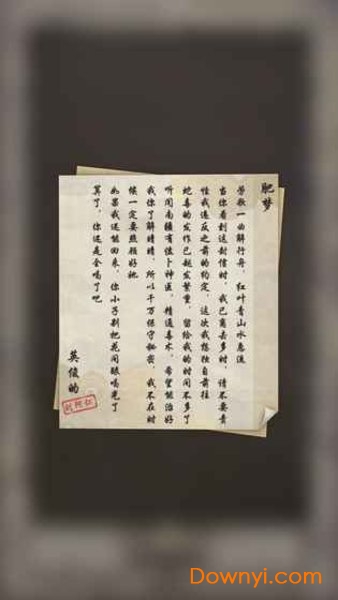 肥梦
劳歌一曲解行舟，红叶青山水急流
当你看到这封信时，我已离去多时，请不要责
怪我违反之前的约定，这次我想独自前往
蛇毒的发作已越发繁重，留给我的时间不多了
听闻南疆有位卜神医，精通毒术，希望能治好
我你了解晴晴，所以千万保守秘密，我不在时
候一定要照顾好她
如果我还能回来，你小子别把花间眠喝光了
算了，你还是全喝了吧
英俊的
Downyi.com